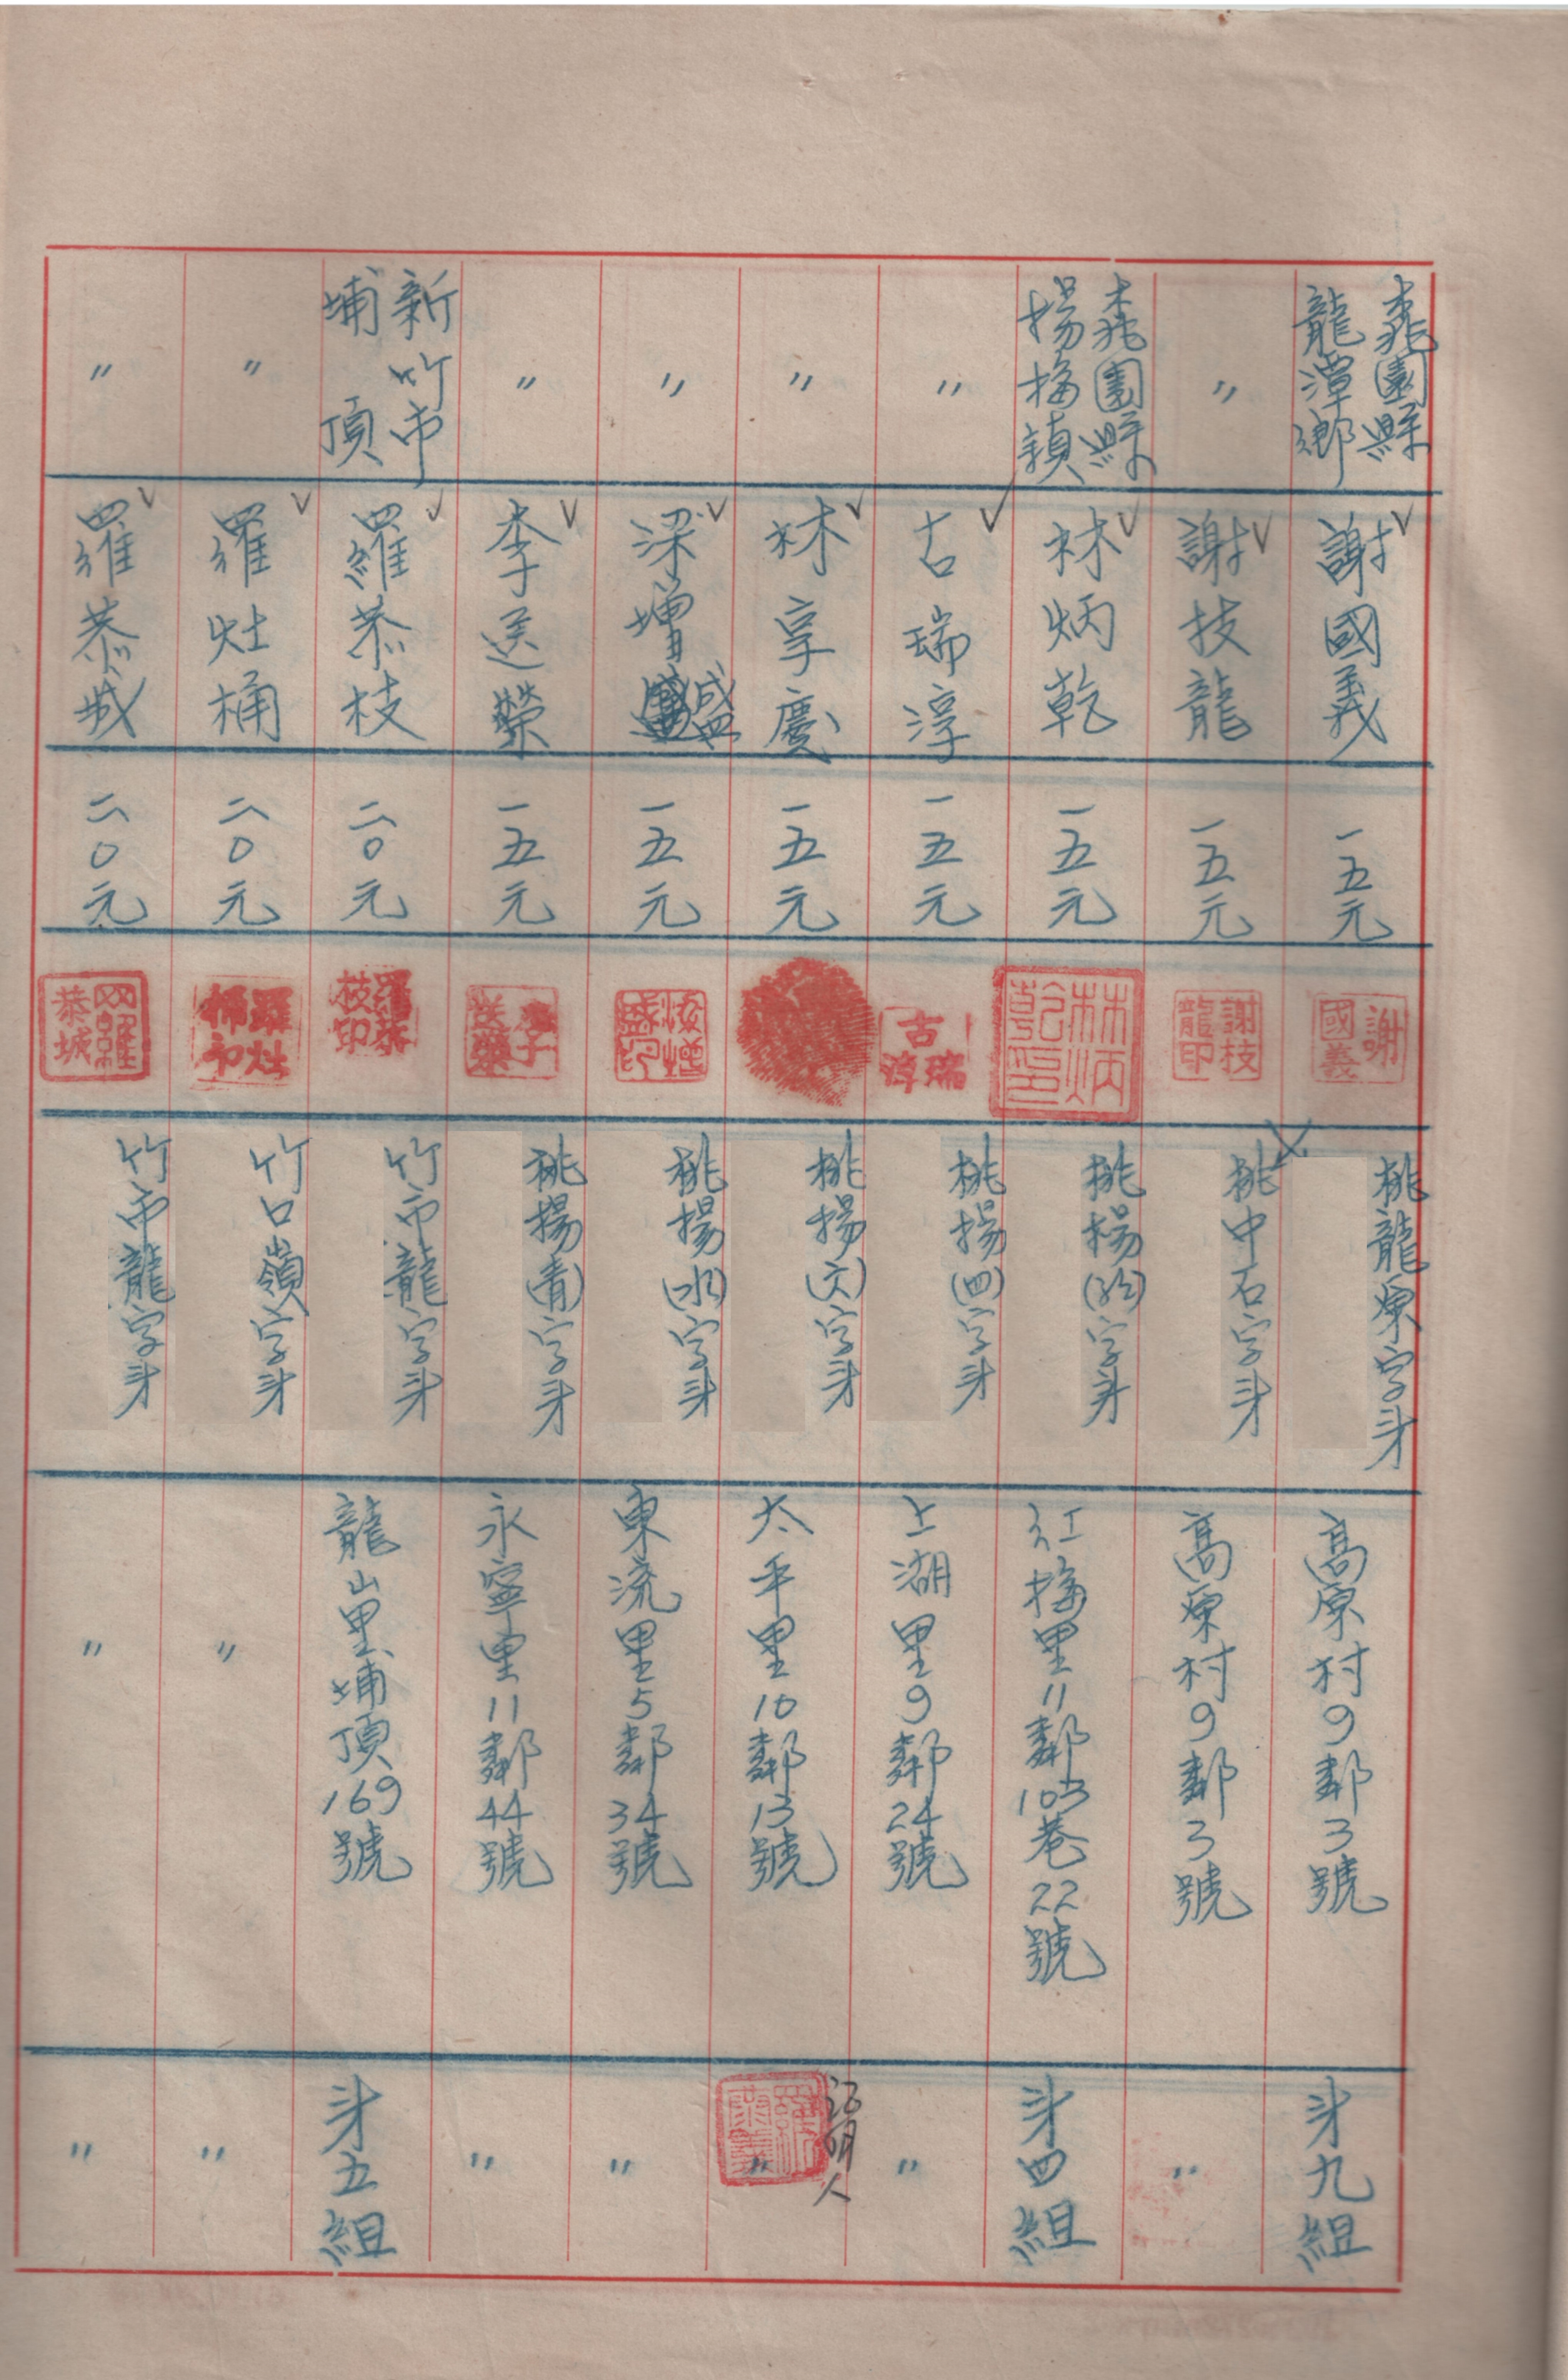 桃園縣
龍潭鄉
謝國義
一五元
謝國義
桃龍原字第
高原村9鄰3號
第九組
〃
謝技龍
一五元
謝枝龍印
桃中石字第
高原村9鄰3號
〃
桃園縣
揚梅鎮
林炳乾
一五元
林炳乾印
桃楊(紅)字第
紅梅里11鄰103巷22號
第四組
〃
古瑞淳
一五元
古瑞淳
桃揚(四)字第
上湖里9鄰24號
〃
〃
林享慶
一五元
桃揚(六)字第
太平里10鄰13號
〃
証明人
〃
梁增盛
一五元
桃揚(水)字第
東流里5鄰34號
〃
〃
李送榮
一五元
李送榮
桃揚(青)字第
永寧里11鄰44號
〃
新竹市
埔頂
羅恭枝
二〇元
羅恭枝印
竹市龍字第
龍山里埔頂169號
第五組
〃
羅灶桶
二〇元
羅灶桶印
竹口嶺字第
〃
〃
〃
羅恭城
二〇元
羅恭城
竹市龍字第
〃
〃